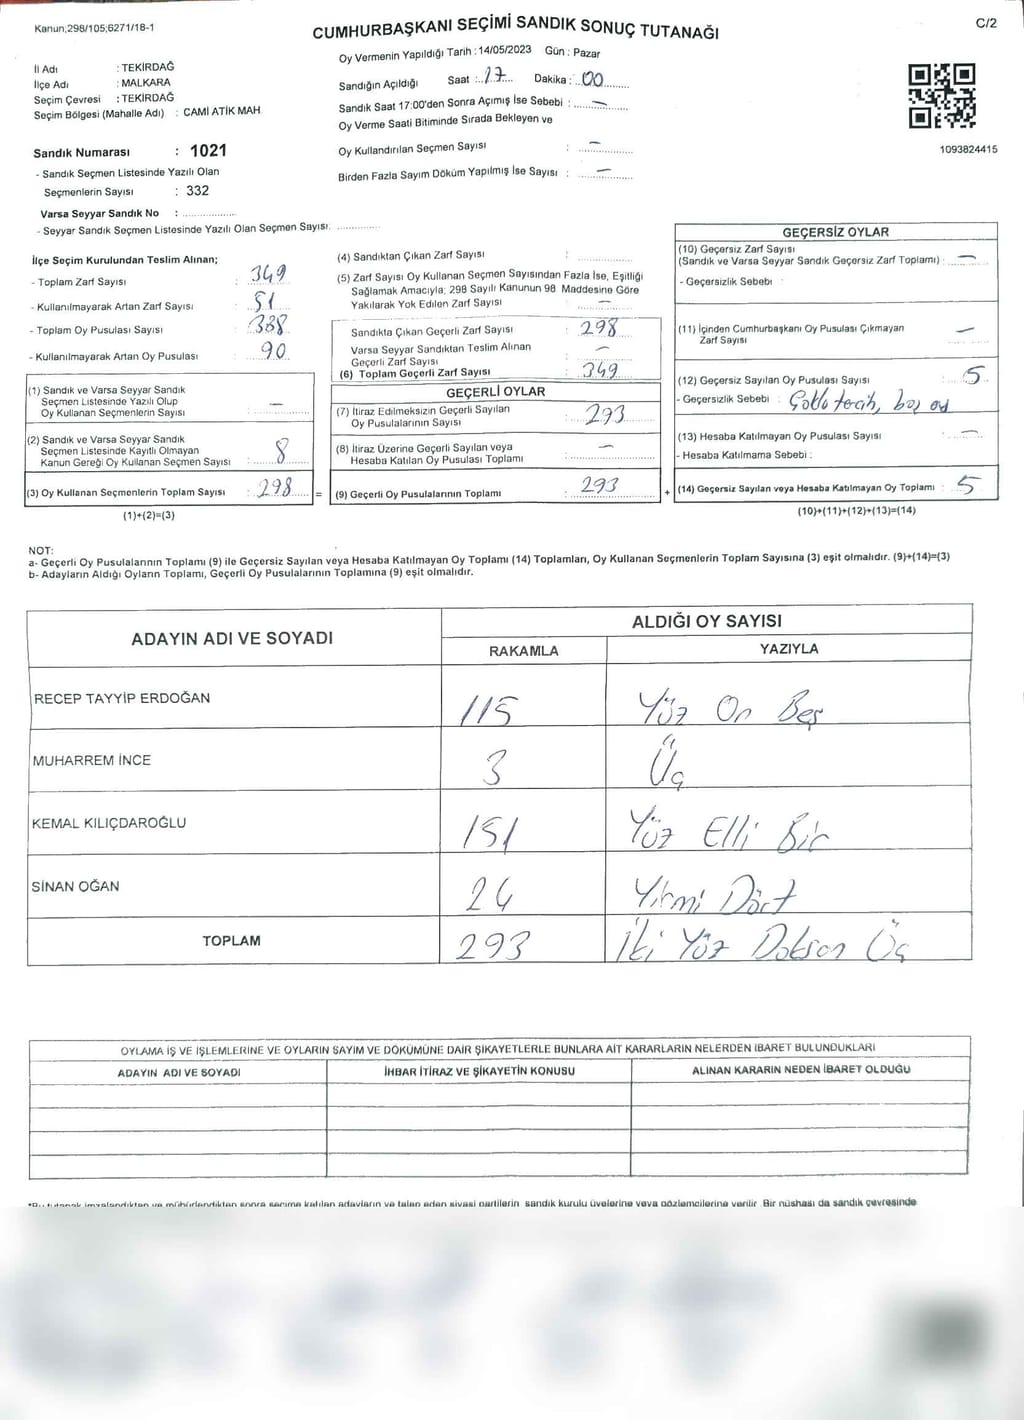 Kanun;298/105;6271/18-1
CUMHURBAŞKANI SEÇİMİ SANDIK SONUÇ TUTANAĞI
C/2
Oy Vermenin Yapıldığı Tarih : 14/05/2023 Gün : Pazar
İl Adı : TEKİRDAĞ
İlçe Adı : MALKARA
Seçim Çevresi : TEKİRDAĞ
Seçim Bölgesi (Mahalle Adı) : CAMİ ATİK MAH.
Sandığın Açıldığı Saat : 17 Dakika : 00
Sandık Saat 17:00'den Sonra Açımış İse Sebebi : —
Oy Verme Saati Bitiminde Sırada Bekleyen ve
Oy Kullandırılan Seçmen Sayısı : —
Birden Fazla Sayım Döküm Yapılmış İse Sayısı : —
1093824415
Sandık Numarası : 1021
- Sandık Seçmen Listesinde Yazılı Olan
Seçmenlerin Sayısı : 332
Varsa Seyyar Sandık No : ..................
- Seyyar Sandık Seçmen Listesinde Yazılı Olan Seçmen Sayısı: ..............
İlçe Seçim Kurulundan Teslim Alınan;
- Toplam Zarf Sayısı : 349
- Kullanılmayarak Artan Zarf Sayısı : 51
- Toplam Oy Pusulası Sayısı : 388
- Kullanılmayarak Artan Oy Pusulası : 90
(1) Sandık ve Varsa Seyyar Sandık
Seçmen Listesinde Yazılı Olup
Oy Kullanan Seçmenlerin Sayısı : —
(2) Sandık ve Varsa Seyyar Sandık
Seçmen Listesinde Kayıtlı Olmayan
Kanun Gereği Oy Kullanan Seçmen Sayısı : 8
(3) Oy Kullanan Seçmenlerin Toplam Sayısı : 298 =
(1)+(2)=(3)
(4) Sandıktan Çıkan Zarf Sayısı : ..............
(5) Zarf Sayısı Oy Kullanan Seçmen Sayısından Fazla İse, Eşitliği
Sağlamak Amacıyla; 298 Sayılı Kanunun 98 Maddesine Göre
Yakılarak Yok Edilen Zarf Sayısı : —
Sandıkta Çıkan Geçerli Zarf Sayısı : 298
Varsa Seyyar Sandıktan Teslim Alınan
Geçerli Zarf Sayısı : —
(6) Toplam Geçerli Zarf Sayısı : 349
GEÇERLİ OYLAR
(7) İtiraz Edilmeksizin Geçerli Sayılan
Oy Pusulalarının Sayısı : 293
(8) İtiraz Üzerine Geçerli Sayılan veya
Hesaba Katılan Oy Pusulası Toplamı : —
(9) Geçerli Oy Pusulalarının Toplamı : 293 +
GEÇERSİZ OYLAR
(10) Geçersiz Zarf Sayısı
(Sandık ve Varsa Seyyar Sandık Geçersiz Zarf Toplamı) : —
- Geçersizlik Sebebi :
(11) İçinden Cumhurbaşkanı Oy Pusulası Çıkmayan
Zarf Sayısı —
(12) Geçersiz Sayılan Oy Pusulası Sayısı : 5
- Geçersizlik Sebebi : Çoklu tercih, boş oy
(13) Hesaba Katılmayan Oy Pusulası Sayısı : —
- Hesaba Katılmama Sebebi :
(14) Geçersiz Sayılan veya Hesaba Katılmayan Oy Toplamı : 5
(10)+(11)+(12)+(13)=(14)
NOT:
a- Geçerli Oy Pusulalarının Toplamı (9) ile Geçersiz Sayılan veya Hesaba Katılmayan Oy Toplamı (14) Toplamları, Oy Kullanan Seçmenlerin Toplam Sayısına (3) eşit olmalıdır. (9)+(14)=(3)
b- Adayların Aldığı Oyların Toplamı, Geçerli Oy Pusulalarının Toplamına (9) eşit olmalıdır.
ADAYIN ADI VE SOYADI ALDIĞI OY SAYISI
RAKAMLA YAZIYLA
RECEP TAYYİP ERDOĞAN 115 Yüz On Beş
MUHARREM İNCE 3 Üç
KEMAL KILIÇDAROĞLU 151 Yüz Elli Bir
SİNAN OĞAN 24 Yirmi Dört
TOPLAM 293 İki Yüz Doksan Üç
OYLAMA İŞ VE İŞLEMLERİNE VE OYLARIN SAYIM VE DÖKÜMÜNE DAİR ŞİKAYETLERLE BUNLARA AİT KARARLARIN NELERDEN İBARET BULUNDUKLARI
ADAYIN ADI VE SOYADI İHBAR İTİRAZ VE ŞİKAYETİN KONUSU ALINAN KARARIN NEDEN İBARET OLDUĞU
*Bu tutanak imzalandıktan ve mühürlendikten sonra seçime katılan adayların ve talep eden siyasi partilerin sandık kurulu üyelerine veya gözlemcilerine verilir. Bir nüshası da sandık çevresinde